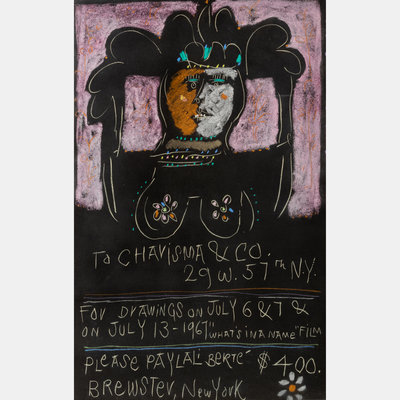 To CHAVISMA & CO.
29 W. 57TH N.Y.
FOV DVAWINGS ON JULY 6 & 7 &
ON JULY 13-1967 "WHAT'S IN A NAME" FILM
PLEASE PAY LALI BERTE $400.
BREWSTEV, New YORK